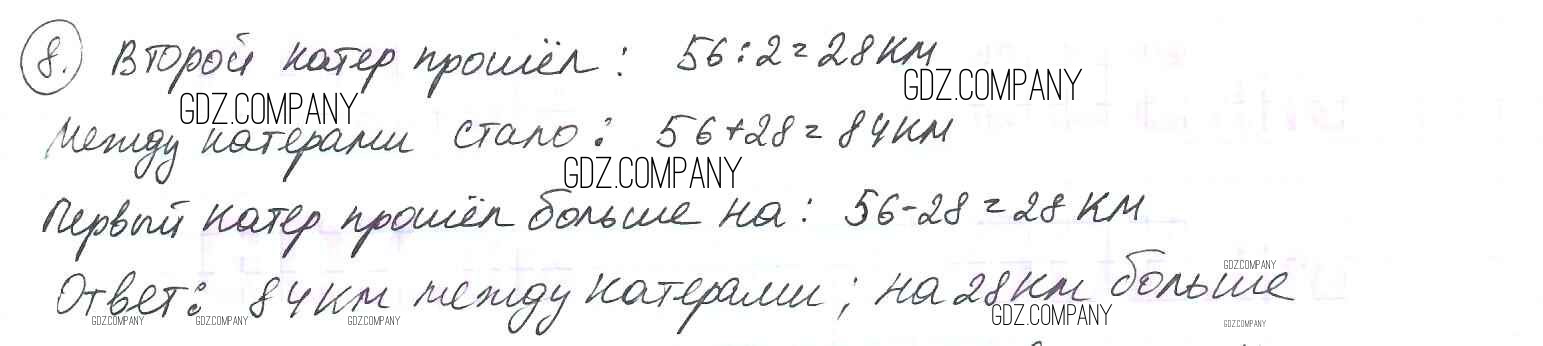 8. Второй катер прошёл: 56:2=28км
GDZ.COMPANY GDZ.COMPANY
Между катерами стало: 56+28=84км
GDZ.COMPANY
Первый катер прошёл больше на: 56-28=28 км
GDZ.COMPANY
Ответ: 84км между катерами; на 28км больше
GDZ.COMPANY GDZ.COMPANY GDZ.COMPANY GDZ.COMPANY GDZ.COMPANY